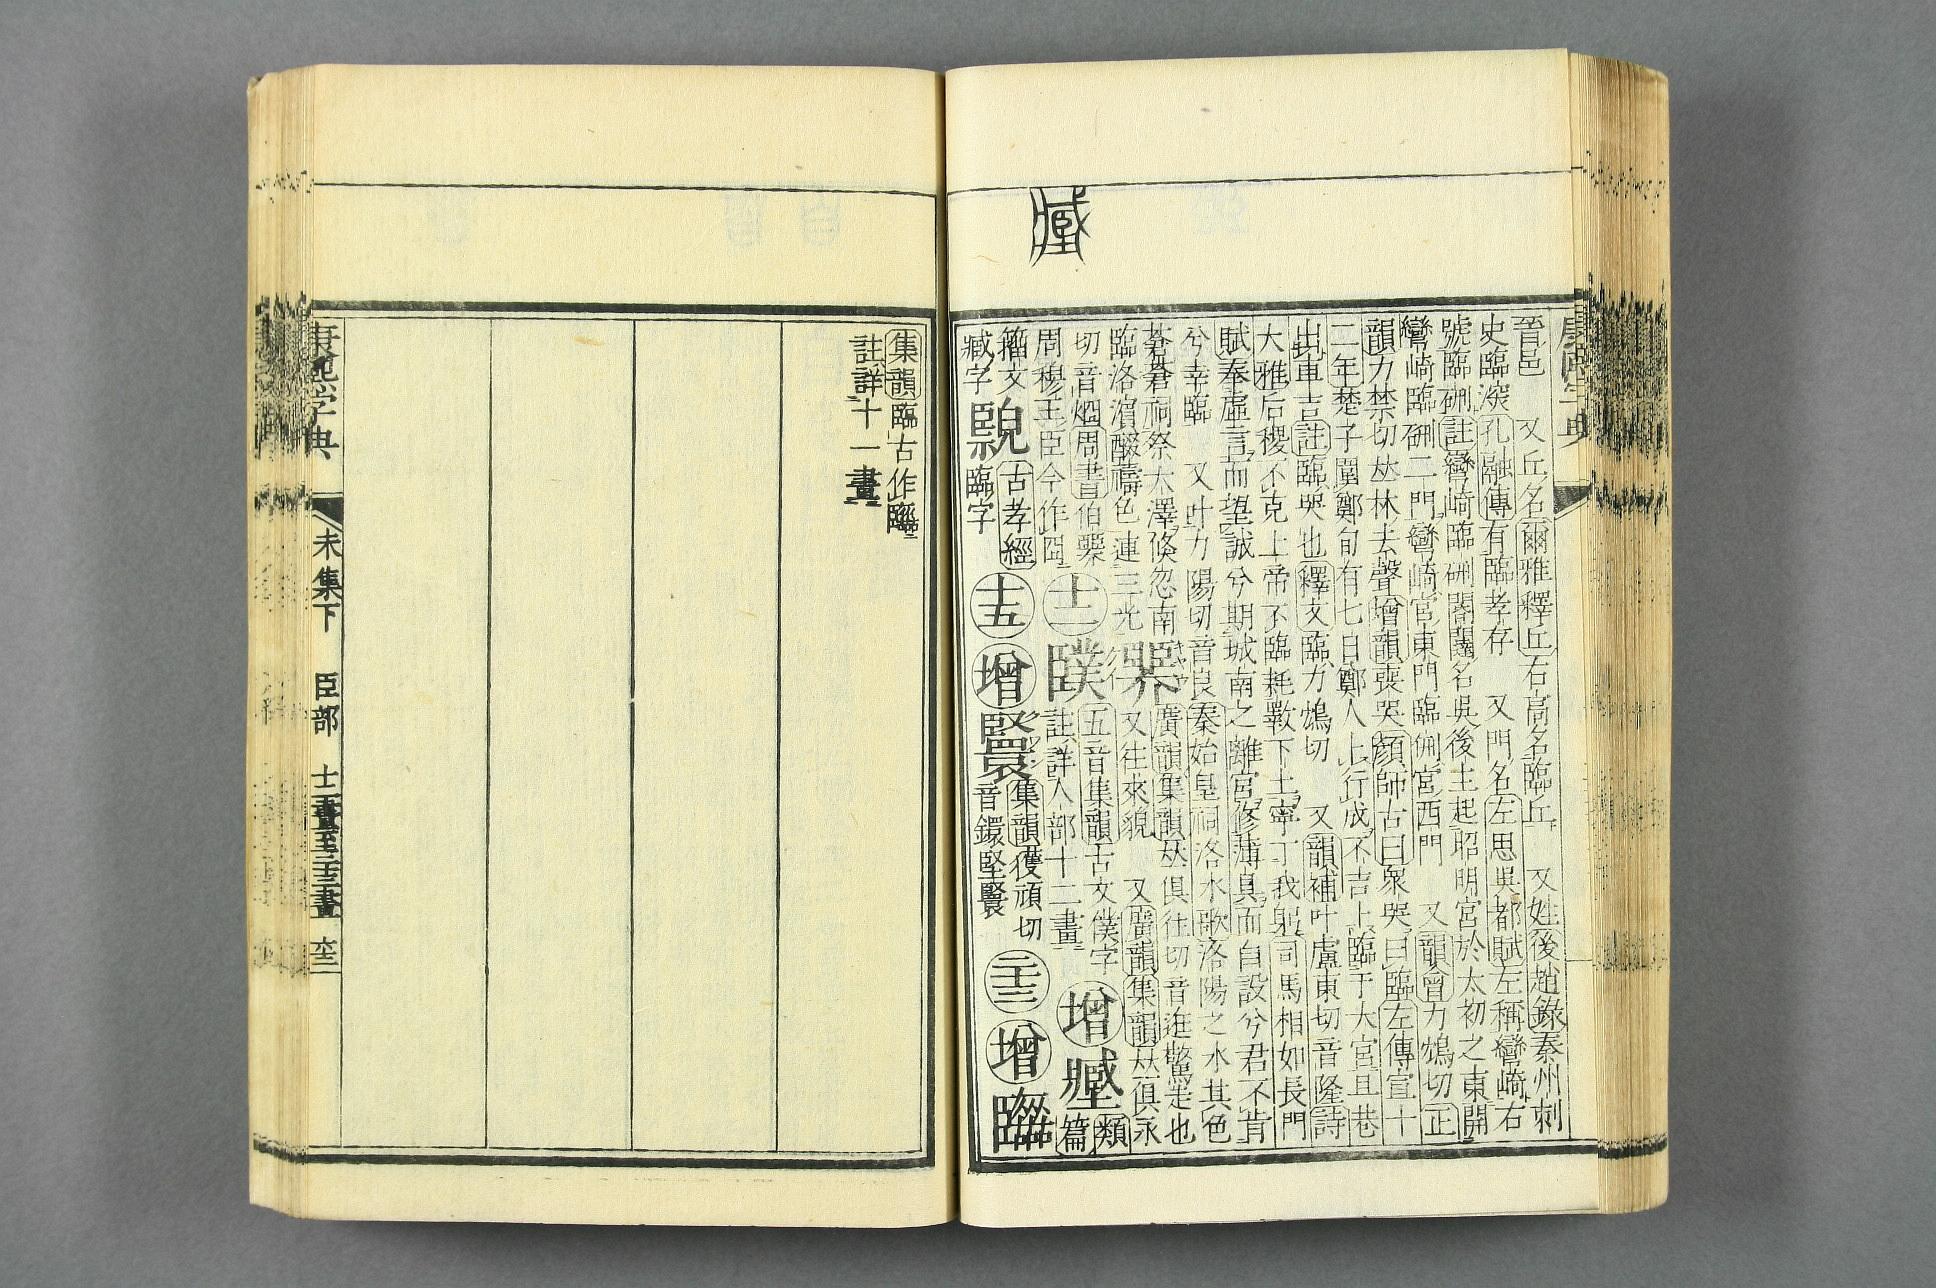 晉邑　又丘名爾雅釋丘右高名臨丘　又姓後趙錄秦州刺
史臨深孔融傳有臨孝存　又門名左思吳都賦左稱彎崎右
號臨硎註彎崎臨硎閽闥名吳後主起昭明宮於太初之東開
彎崎臨硎二門彎崎宮東門臨硎宮西門　又韻會力鴆切正
韻力禁切𠀤林去聲增韻喪哭顏師古曰衆哭曰臨左傳宣十
二年楚子圍鄭旬有七日鄭人卜行成不吉卜臨于大宮且巷
出車吉註臨哭也釋文臨力鴆切　又韻補叶盧東切音隆詩
大雅后稷不克上帝不臨耗斁下土寧丁我躬司馬相如長門
賦奉虛言而望誠兮期城南之離宮修薄具而自設兮君不肯
兮幸臨　又叶力陽切音良秦始皇祠洛水歌洛陽之水其色
蒼蒼祠祭大澤倏忽南
臨洛濵醊禱色連三光
臩
廣韻集韻𠀤俱往切音逛驚走也
又往來貌　又廣韻集韻𠀤俱永
切音煚周書伯臩
周穆王臣今作囧
十二
䑑
五音集韻古文僕字
註詳人部十二畫
增
類篇
籀文
臧字
古孝經
臨字
十五
增
集韻獲頑切
音鐶堅
二十三
增
康熙字典
集韻臨古作
註詳十一畫
康熙字典　未集下　臣部